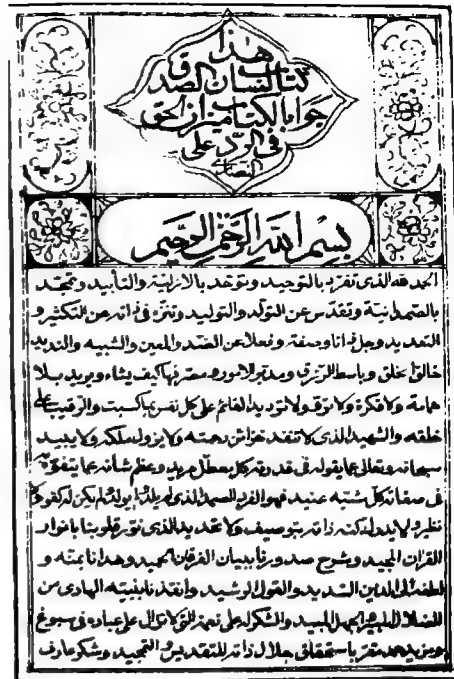 هذا
كتاب لسان الصدق
جوابا لكتاب ميزان الحق
في الرد على
النصارى
بسم الله الرحمن الرحيم
الحمد لله الذى تفرد بالتوحيد وتوحد بالازلية والتأبيد وتمجد
بالصمدانية وتقدس عن التولد والتوليد وتنزه فى ذاته عن التكثير و
التعديد وجل ذاتا وصفة وفعلا عن الضد والمعين والشبيه والنديد
خالق الخلق وباسط الرزق ومدبر الامور ومصرفها كيف يشاء ويريد بلا
همامة ولا فكرة ولا ترديد القائم على كل نفس بما كسبت والرقيب على
خلقه والشهيد الذى لا تنفد خزائن رحمته ولا يزول ملكه ولا يبيد
سبحانه وتعالى عما يقوله فى قدرته كل معطل مريد وعظم شأنه عما يتفوه به
فى صفاته كل مشبه عنيد فهو الفرد الصمد الذى لم يلد ولم يولد ولم يكن له كفو ولا
نظير ولا يدرك كنه ذاته بتوصيف ولا تحديد الذى نور قلوبنا بانوار
القرآن المجيد وشرح صدورنا ببيان الفرقان الحميد وهدانا بمنه و
لطفه الى الدين السديد والقول الرشيد وانقذنا بنبيه الهادى من
الضلال الجهل المبيد والشكر له على نعمه التى لا تزال على عباده فى سبوغ
ومزيد حمد مقر باستحقاق جلال ذاته للتقديس والتمجيد وشكر عارف